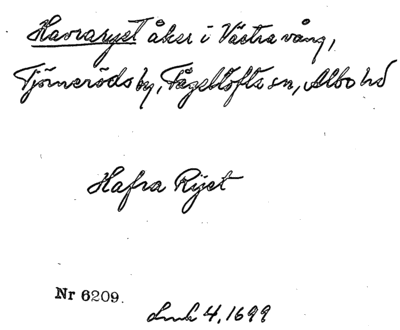 Havraryet åker i Västra vång,
Tjörneröds by, Fågeltofta sn, Albo hd
Hafra Rÿet
Nr 6209.
Lmk 4, 1699